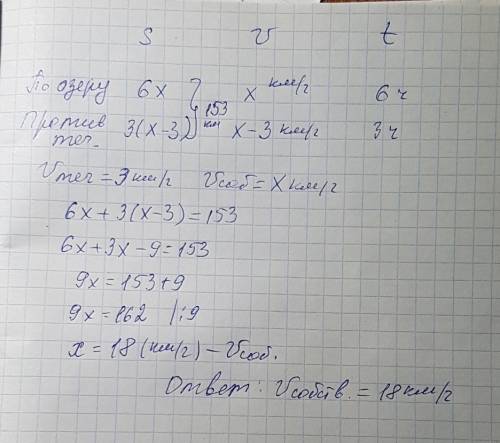 S v t
По озеру 6x x км/г 6 ч
153 км
Против теч. 3(x-3) x-3 км/г 3 ч
Vтеч = 3 км/г Vсоб = x км/г
6x + 3(x-3) = 153
6x + 3x - 9 = 153
9x = 153 + 9
9x = 162 |:9
x = 18 (км/г) - Vсоб.
Ответ: Vсобств. = 18 км/г